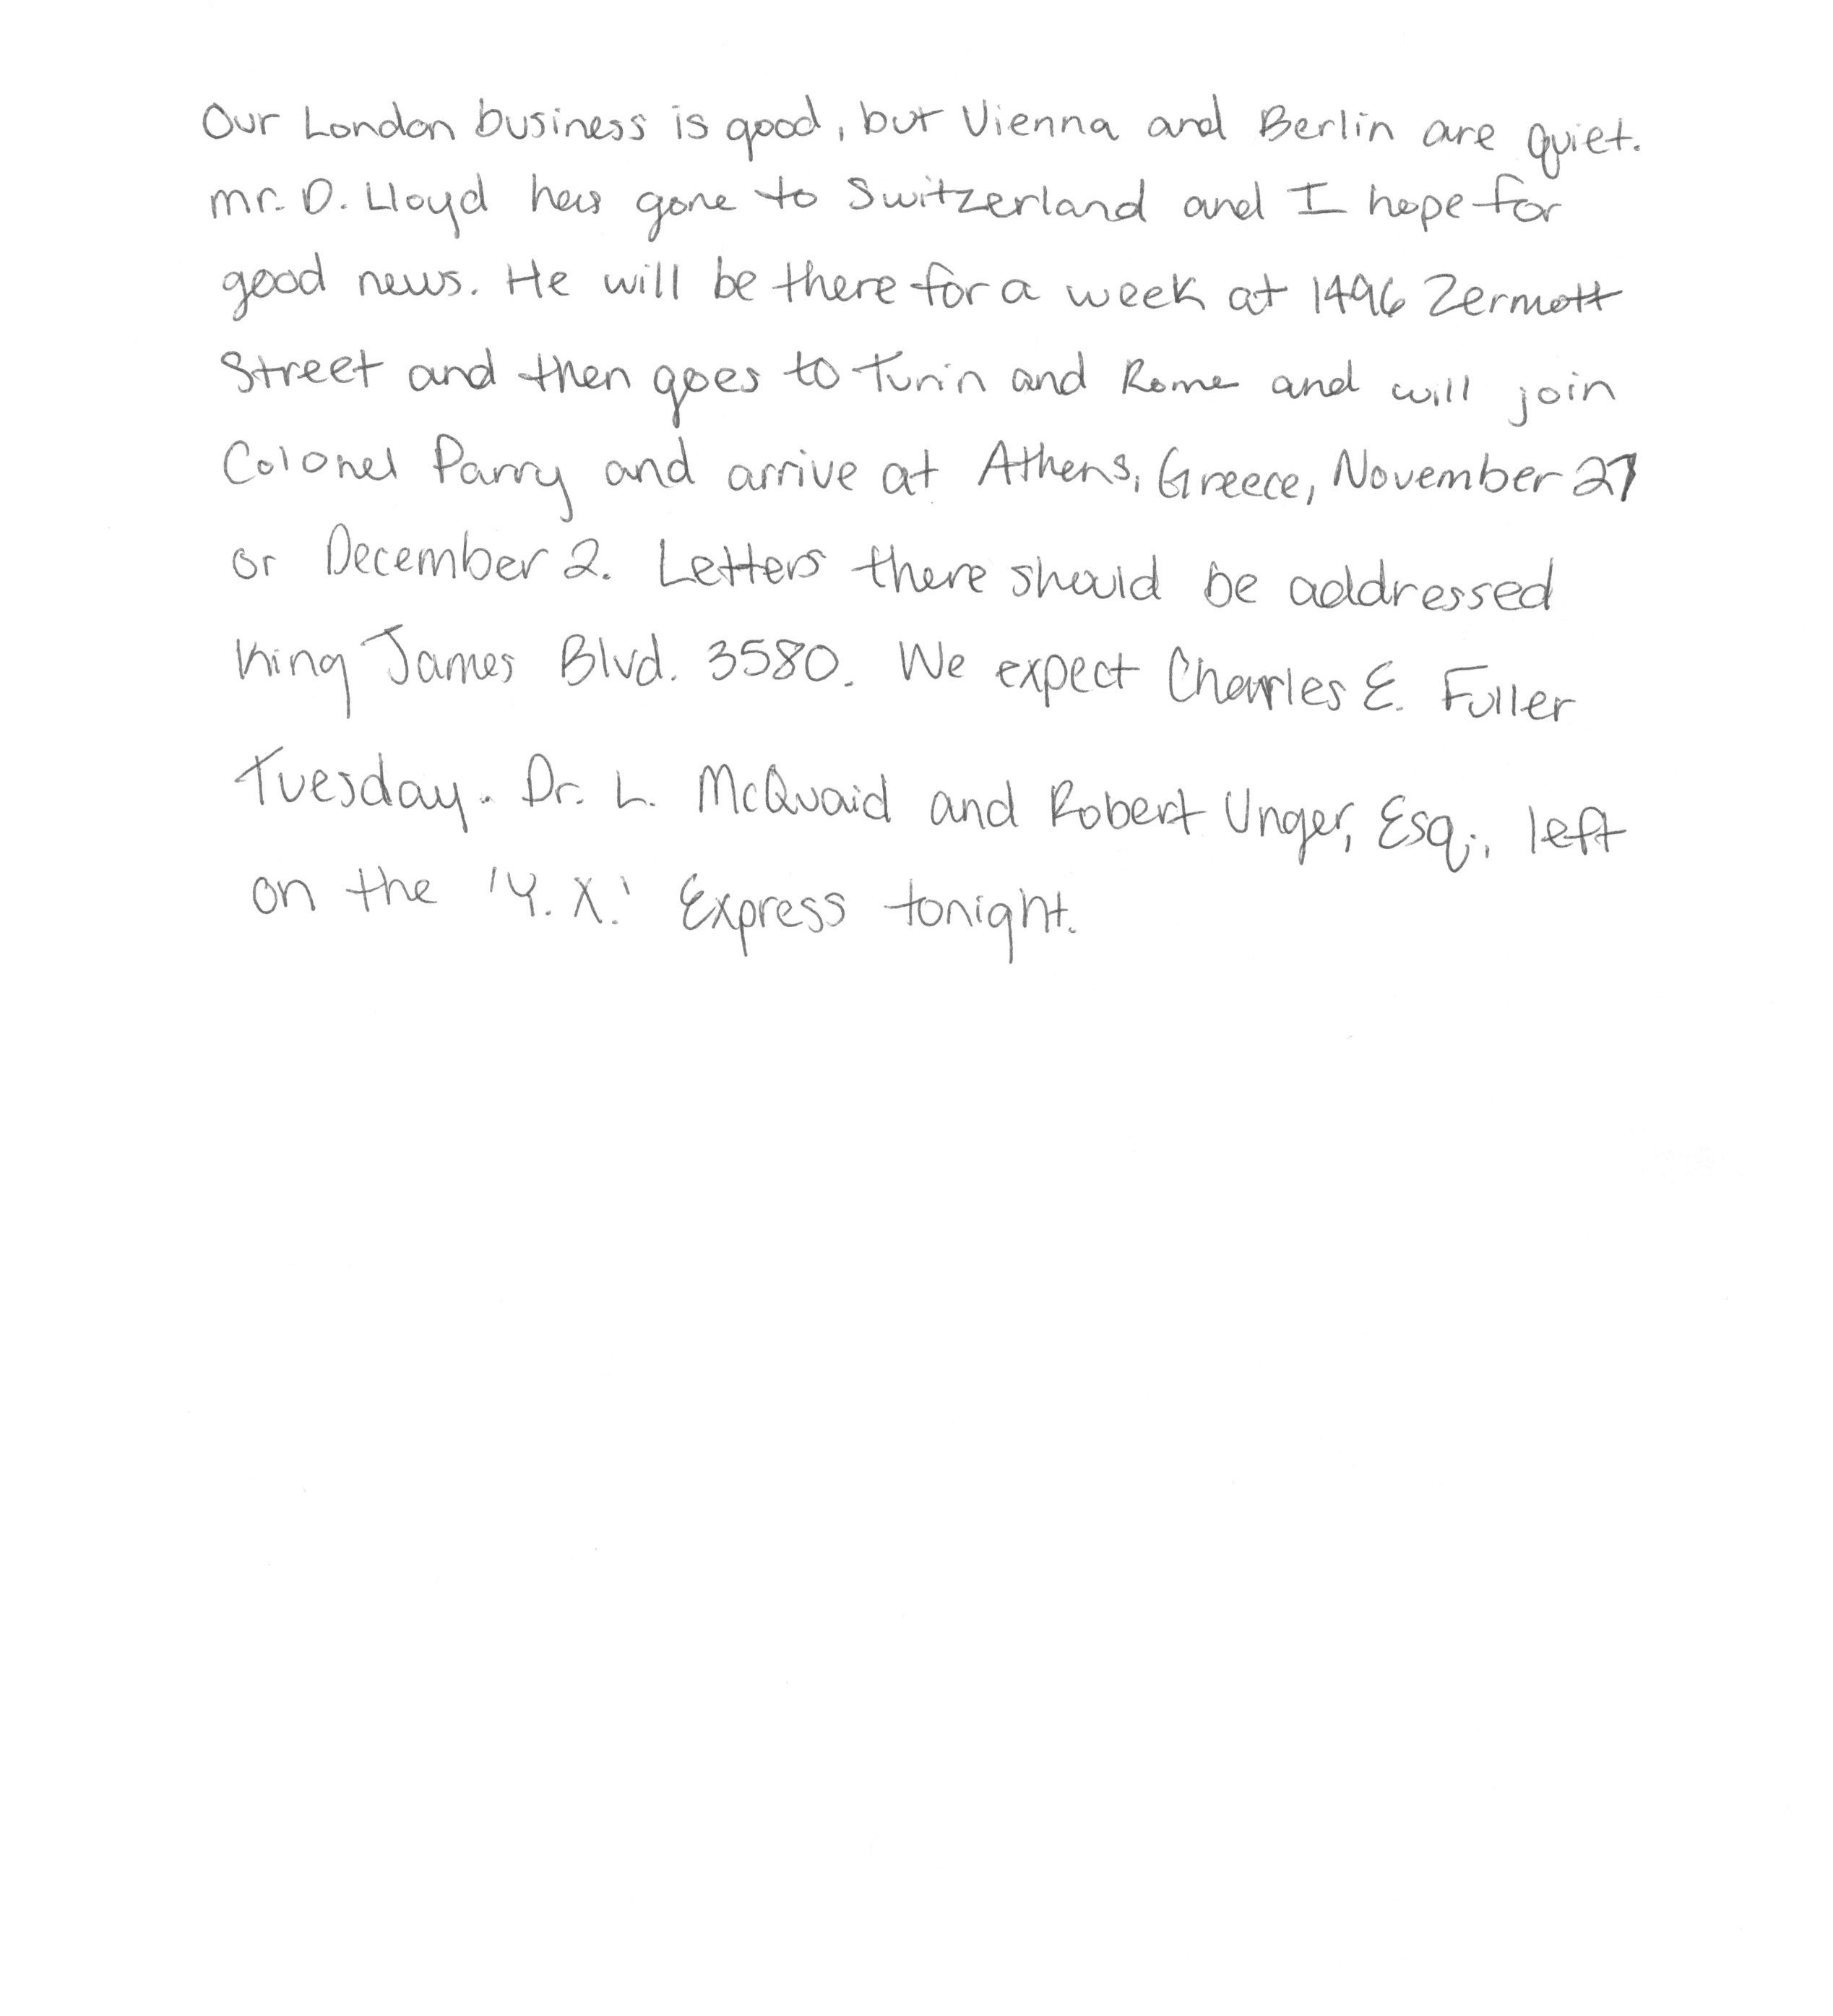 Our London business is good, but Vienna and Berlin are quiet.
mr. D. Lloyd has gone to Switzerland and I hope for
good news. He will be there for a week at 1496 Zermott
Street and then goes to Turin and Rome and will join
Colonel Parry and arrive at Athens, Greece, November 27
or December 2. Letters there should be addressed
King James Blvd. 3580. We expect Charles E. Fuller
Tuesday. Dr. L. McQuaid and Robert Unger, Esq., left
on the 'Y.X.' Express tonight.